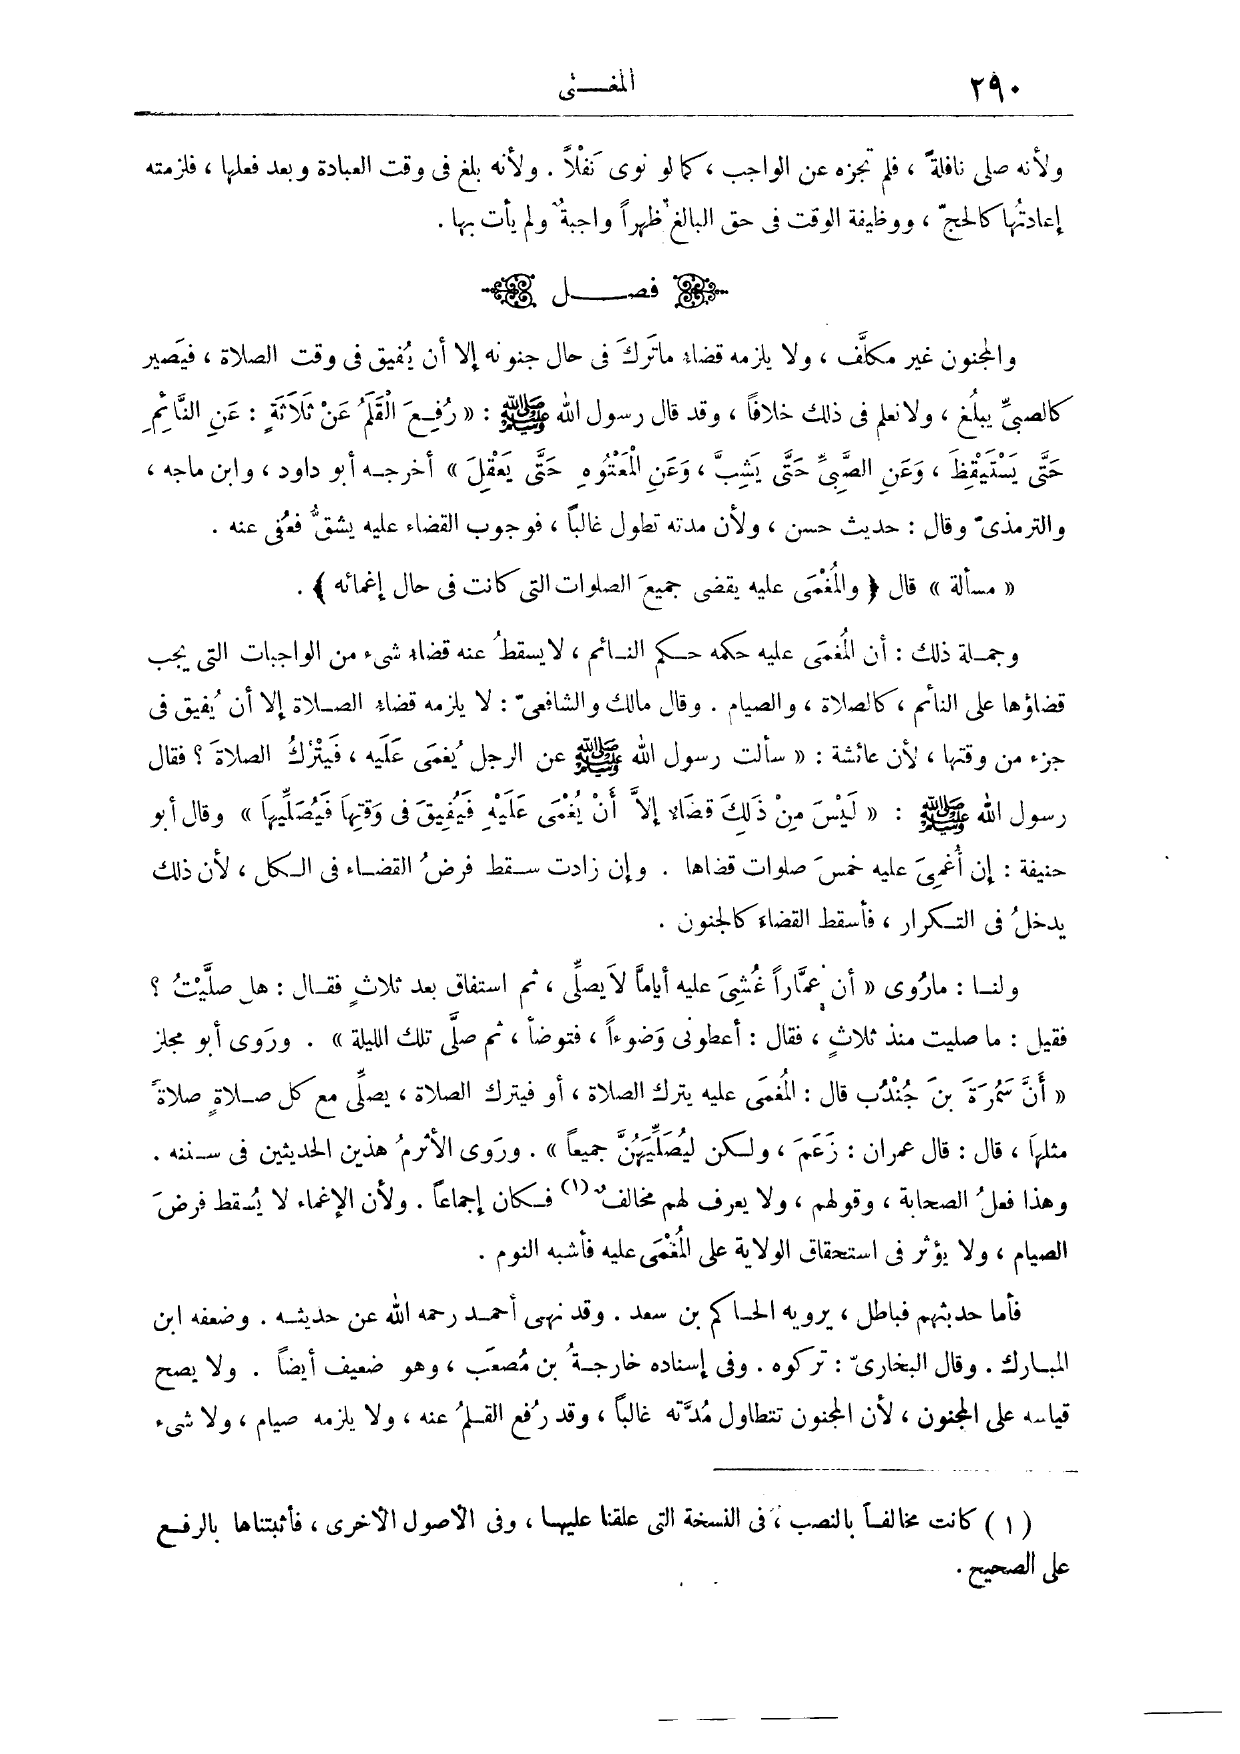 ٢٩٠
المغـــنى
ولأنه صلى نافلةً ، فلم تجزه عن الواجب ، كما لو نوى نَفْلاً . ولأنه بلغ فى وقت العبادة وبعد فعلها ، فلزمته
إعادتُها كالحجّ ، ووظيفة الوقت فى حق البالغ ظهراً واجبةٌ ولم يأت بها .
فصـــــل
والمجنون غير مكلَّف ، ولا يلزمه قضاء ماتَركَ فى حال جنونه إلا أن يُفيق فى وقت الصلاة ، فيَصير
كالصبىِّ يبلُغ ، ولانعلم فى ذلك خلافاً ، وقد قال رسول الله ﷺ : « رُفِعَ الْقَلَمُ عَنْ ثَلَاثَةٍ : عَنِ النَّائِمِ
حَتَّى يَسْتَيْقِظَ ، وَعَنِ الصَّبِىِّ حَتَّى يَشِبَّ ، وَعَنِ الْمَعْتُوهِ حَتَّى يَعْقِلَ » أخرجـه أبو داود ، وابن ماجه ،
والترمذىّ وقال : حديث حسن ، ولأن مدته تطول غالباً ، فوجوب القضاء عليه يشقُّ فعُفى عنه .
« مسألة » قال ﴿ والمُغْمَى عليه يقضى جميعَ الصلوات التى كانت فى حال إغمائه ﴾ .
وجمـلة ذلك : أن المُغمَى عليه حكمه حـكم النـائم ، لايسقطُ عنه قضاء شىء من الواجبات التى يجب
قضاؤها على النأئم ، كالصلاة ، والصيام . وقال مالك والشافعىّ : لا يلزمه قضاء الصـلاة إلا أن يُفيق فى
جزء من وقتها ، لأن عائشة : « سألت رسول الله ﷺ عن الرجل يُغمَى عَلَيه ، فَيتْرُكُ الصلاةَ ؟ فقال
رسول الله ﷺ : « لَيْسَ مِنْ ذَلِكَ قضَاء إلاَّ أَنْ يُغْمَى عَلَيْهِ فَيُفِيقَ فى وَقتِهَا فَيُصَلِّيهاَ » وقال أبو
حنيفة : إن أُغمِىَ عليه خمسَ صلوات قضاها . وإن زادت سـقط فرضُ القضـاء فى الـكل ، لأن ذلك
يدخلُ فى التـكرار ، فأسقط القضاءَ كالجنون .
ولنـا : مارُوى « أن عمَّاراً غُشِىَ عليه أياماً لاَيصلِّى ، ثم استفاق بعد ثلاثٍ فقـال : هل صلَّيْتُ ؟
فقيل : ما صليت منذ ثلاثٍ ، فقال : أعطونى وَضوءاً ، فتوضأ ، ثم صلَّى تلك الليلة » . ورَوى أبو مجلز
« أَنَّ سَمُرَةَ بنَ جُنْدُب قال : المُغمَى عليه يترك الصلاة ، أو فيترك الصلاة ، يصلِّى مع كل صـلاةٍ صلاةً
مثلهاَ ، قال : قال عمران : زَعَمَ ، ولـكن ليُصَلِّيَهُنَّ جميعاً » . ورَوى الأثرمُ هذين الحديثين فى سـننه .
وهذا فعلُ الصحابة ، وقولهم ، ولا يعرف لهم مخالفٌ (١) فـكان إجماعاً . ولأن الإغماء لا يُسقط فرضَ
الصيام ، ولا يؤثر فى استحقاق الولاية على المُغْمَى عليه فأشبه النوم .
فأما حديثهم فباطل ، يرويه الحـاكم بن سعد . وقد نهى أحمـد رحمه الله عن حديثـه . وضعفه ابن
المبـارك . وقال البخارىّ : تركوه . وفى إسناده خارجـةُ بن مُصعَب ، وهو ضعيف أيضاً . ولا يصح
قياسه على المجنون ، لأن المجنون تتطاول مُدَّته غالباً ، وقد رُفع القـلمُ عنه ، ولا يلزمه صيام ، ولا شىء
(١) كانت مخالفـاً بالنصب ، فى النسخة التى علقنا عليهـا ، وفى الأصول الأخرى ، فأثبتناها بالرفـع
على الصحيح .